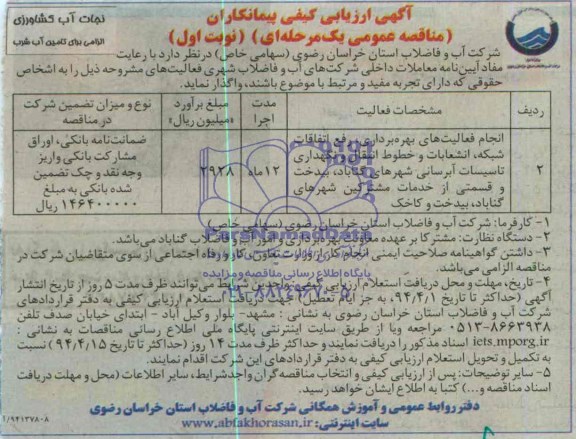 آگهی ارزیابی کیفی پیمانکاران
نجات آب کشاورزی
(مناقصه عمومی یک‌مرحله‌ای) (نوبت اول)
الزامی برای تامین آب شرب
شرکت آب و فاضلاب استان خراسان رضوی (سهامی خاص) در نظر دارد با رعایت
مفاد آیین‌نامه معاملات داخلی شرکت‌های آب و فاضلاب شهری فعالیت‌های مشروحه ذیل را به اشخاص
حقوقی که دارای تجربه مفید و مرتبط با موضوع باشند، واگذار نماید.
ردیف
مشخصات فعالیت
مدت اجرا
مبلغ برآورد «میلیون ریال»
نوع و میزان تضمین شرکت در مناقصه
۲
انجام فعالیت‌های بهره‌برداری، رفع اتفاقات
شبکه، انشعابات و خطوط انتقال و نگهداری
تاسیسات آبرسانی شهرهای گناباد، بیدخت
و قسمتی از خدمات مشترکین شهرهای
گناباد، بیدخت و کاخک
۱۲ماه
۲۹۲۸
ضمانت‌نامه بانکی، اوراق
مشارکت بانکی واریز
وجه نقد و چک تضمین
شده بانکی به مبلغ
۱۴۶۴۰۰۰۰۰ ریال
۱- کارفرما: شرکت آب و فاضلاب استان خراسان رضوی (سهامی خاص)
۲- دستگاه نظارت: مشترکا بر عهده معاونت بهره‌برداری و امور آب و فاضلاب گناباد می‌باشد.
۳- داشتن گواهینامه صلاحیت ایمنی انجام کار از وزارت تعاون، کار و رفاه اجتماعی از سوی متقاضیان شرکت در
مناقصه الزامی می‌باشد.
۴- تاریخ، مهلت و محل دریافت استعلام ارزیابی کیفی: واجدین شرایط می‌توانند ظرف مدت ۵ روز از تاریخ انتشار
آگهی (حداکثر تا تاریخ ۹۴/۴/۱، به جز ایام تعطیل) جهت دریافت استعلام ارزیابی کیفی به دفتر قراردادهای
شرکت آب و فاضلاب استان خراسان رضوی به نشانی: مشهد- بلوار وکیل آباد - ابتدای خیابان صدف تلفن
۰۵۱۳-۸۶۶۳۹۳۸ مراجعه ویا از طریق سایت اینترنتی پایگاه ملی اطلاع رسانی مناقصات به نشانی :
iets.mporg.ir اسناد مذکور را دریافت نمایند و حداکثر ظرف مدت ۱۴ روز (حداکثر تا تاریخ ۹۴/۴/۱۵) نسبت
به تکمیل و تحویل استعلام ارزیابی کیفی به دفتر قراردادهای این شرکت اقدام نمایند.
۵- سایر توضیحات: پس از ارزیابی کیفی و انتخاب مناقصه‌گران واجد شرایط، سایر اطلاعات (محل و مهلت دریافت
اسناد مناقصه و...) کتبا به اطلاع ایشان خواهد رسید.
دفتر روابط عمومی و آموزش همگانی شرکت آب و فاضلاب استان خراسان رضوی
سایت اینترنتی: www.abfakhorasan.ir
۹۴۱۳۷۸۰۸/
ParsNamadData
پایگاه اطلاع رسانی مناقصه و مزایده